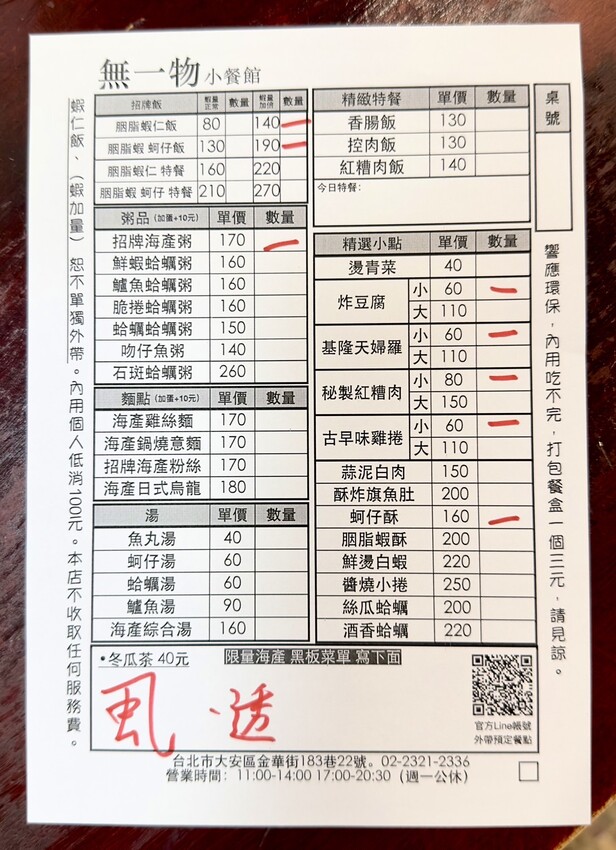 無一物 小餐館
招牌飯 蝦量正常 數量 蝦量加倍 數量
胭脂蝦仁飯 80 140 一
胭脂蝦 蚵仔飯 130 190 一
胭脂蝦仁 特餐 160 220
胭脂蝦 蚵仔 特餐 210 270
粥品 (加蛋+10元) 單價 數量
招牌海產粥 170 一
鮮蝦蛤蠣粥 160
鱸魚蛤蠣粥 160
脆捲蛤蠣粥 160
蛤蠣蛤蠣粥 150
吻仔魚粥 140
石斑蛤蠣粥 260
麵點 (加蛋+10元) 單價 數量
海產雞絲麵 170
海產鍋燒意麵 170
招牌海產粉絲 170
海產日式烏龍 180
湯 單價 數量
魚丸湯 40
蚵仔湯 60
蛤蠣湯 60
鱸魚湯 90
海產綜合湯 160
精緻特餐 單價 數量
香腸飯 130
控肉飯 130
紅糟肉飯 140
今日特餐:
精選小點 單價 數量
燙青菜 40
炸豆腐 小 60 一
大 110
基隆天婦羅 小 60 一
大 110
秘製紅糟肉 小 80 一
大 150
古早味雞捲 小 60 一
大 110
蒜泥白肉 150
酥炸旗魚肚 200
蚵仔酥 160 一
胭脂蝦酥 200
鮮燙白蝦 220
醬燒小捲 250
絲瓜蛤蠣 200
酒香蛤蠣 220
桌號
蝦仁飯、(蝦加量) 恕不單獨外帶。內用個人低消100元。本店不收取任何服務費。
響應環保,內用吃不完,打包餐盒一個三元,請見諒。
•冬瓜茶 40元
限量海產 黑板菜單 寫下面
官方Line帳號
外帶預定餐點
台北市大安區金華街183巷22號。02-2321-2336
營業時間: 11:00-14:00 17:00-20:30 (週一公休)